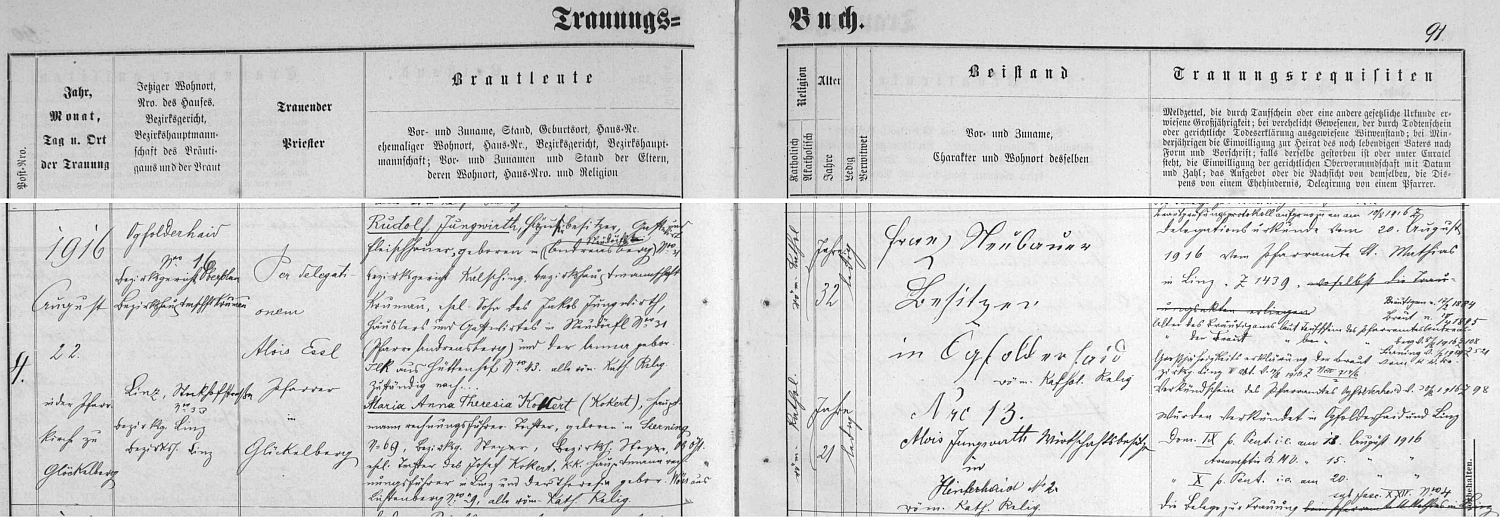 Trauungs=
Buch.
91
Post-Nro.
Jahr,
Monat,
Tag u. Ort
der Trauung
Jetziger Wohnort,
Nro. des Hauses,
Bezirksgericht,
Bezirkshauptmann-
schaft des Bräuti-
gams und der Braut
Trauender
Priester
Brautleute
Vor- und Zuname, Stand, Geburtsort, Haus-Nr.
ehemaliger Wohnort, Haus-Nr., Bezirksgericht, Bezirkshaupt-
mannschaft; Vor- und Zunamen und Stand der Eltern,
deren Wohnort, Haus-Nro. und Religion
Religion
Katholisch
Akatholisch
Alter
Jahre
Ledig
Verwitwet
Beistand
Vor- und Zuname,
Charakter und Wohnort desselben
Trauungsrequisiten
Meldzettel, die durch Taufschein oder eine andere gesetzliche Urkunde er-
wiesene Großjährigkeit; bei verehelicht Gewesenen, der durch Todtenschein
oder gerichtliche Todeserklärung ausgewiesene Witwenstand; bei Min-
derjährigen die Einwilligung zur Heirat des noch lebendigen Vaters nach
Form und Vorschrift; falls derselbe gestorben ist oder unter Curatel
steht, die Einwilligung der gerichtlichen Obervormundschaft mit Datum
und Zahl; das Aufgebot oder die Nachsicht von demselben, die Dis-
pens von einem Ehehindernis, Delegirung von einem Pfarrer.
4.
1916
August
22.
in der Pfarr-
kirch zu
Glöckelberg
Ogfolderhaid
Nro 16
Bezirksgericht Oberplan
Bezirkshauptmschft Krumau
Linz, Stockhofstrasse
Nro 33
Bezirksg. Linz
Bezirksh. Linz
Per delegati-
onem
Alois Essl
Pfarrer
in
Glöckelberg
Rudolf Jungwirth, Häuslbesitzer,
Fleischhauer, geboren in Andreasberg
Bezirksgericht Kalsching, Bezirkshauptmannschaft
Krumau, ehel. Sohn des Jakob Jungwirth,
Häuslers und Gastwirtes in Neudörfl Nro 31
(Pfarre Andreasberg) und der Anna gebor.
aus Hüttenhof Nro 43. alle röm. Kath. Relig.
Zuständig nach...
Maria Anna Theresia Kokert (Kokert), Haupt-
mannrechnungsführers Tochter, geboren in Sierning
No 69, Bezirksg. Steyer, Bezirksh. Steyer,
ehel. Tochter des Josef Kokert, k.k. Hauptmannrech-
nungsführer in Linz und der Theresia gebor. aus
Lustenberg Nro 9, alle röm. Kath. Relig.
röm. kathol.
Jahre
32
ledig
röm. kathol.
Jahre
21
ledig
Franz Neubauer
Besitzer
in Ogfolderhaid
röm. kathol. Relig
Nro 13.
Alois Jungwirth Wirtschaftsbesitzer
in
Hinterhaid No 2
röm. kath. Relig.
Delegationsurkunde vom 20. August
1916 vom Pfarramte St. Mathias
in Linz. Z 1439.
Verkündschein des Pfarramtes Ogfolderhaid
Wurden verkündet in Ogfolderhaid und Linz
Dom. IX p. Pent. i.e. am 13. August 1916
Assumptio B.M.V. " 15. " "
" X p. Pent. i.e. am 20. " "
Die Belege zur Trauung